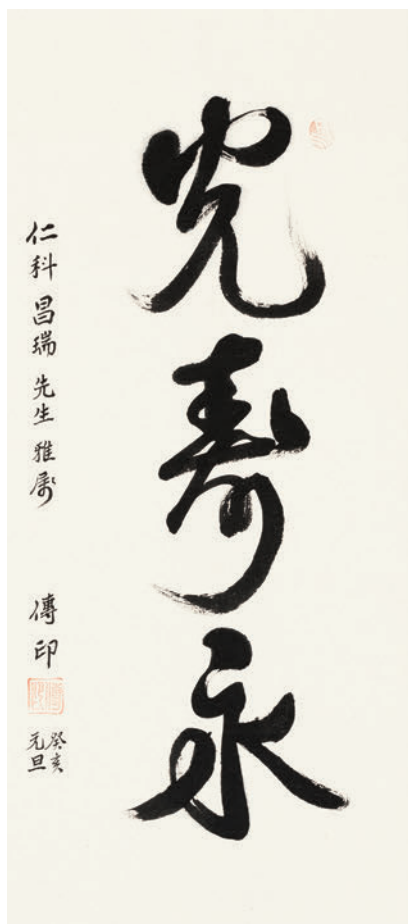 光寿永
仁科 昌瑞 先生 雅属
傳印
癸亥
元旦